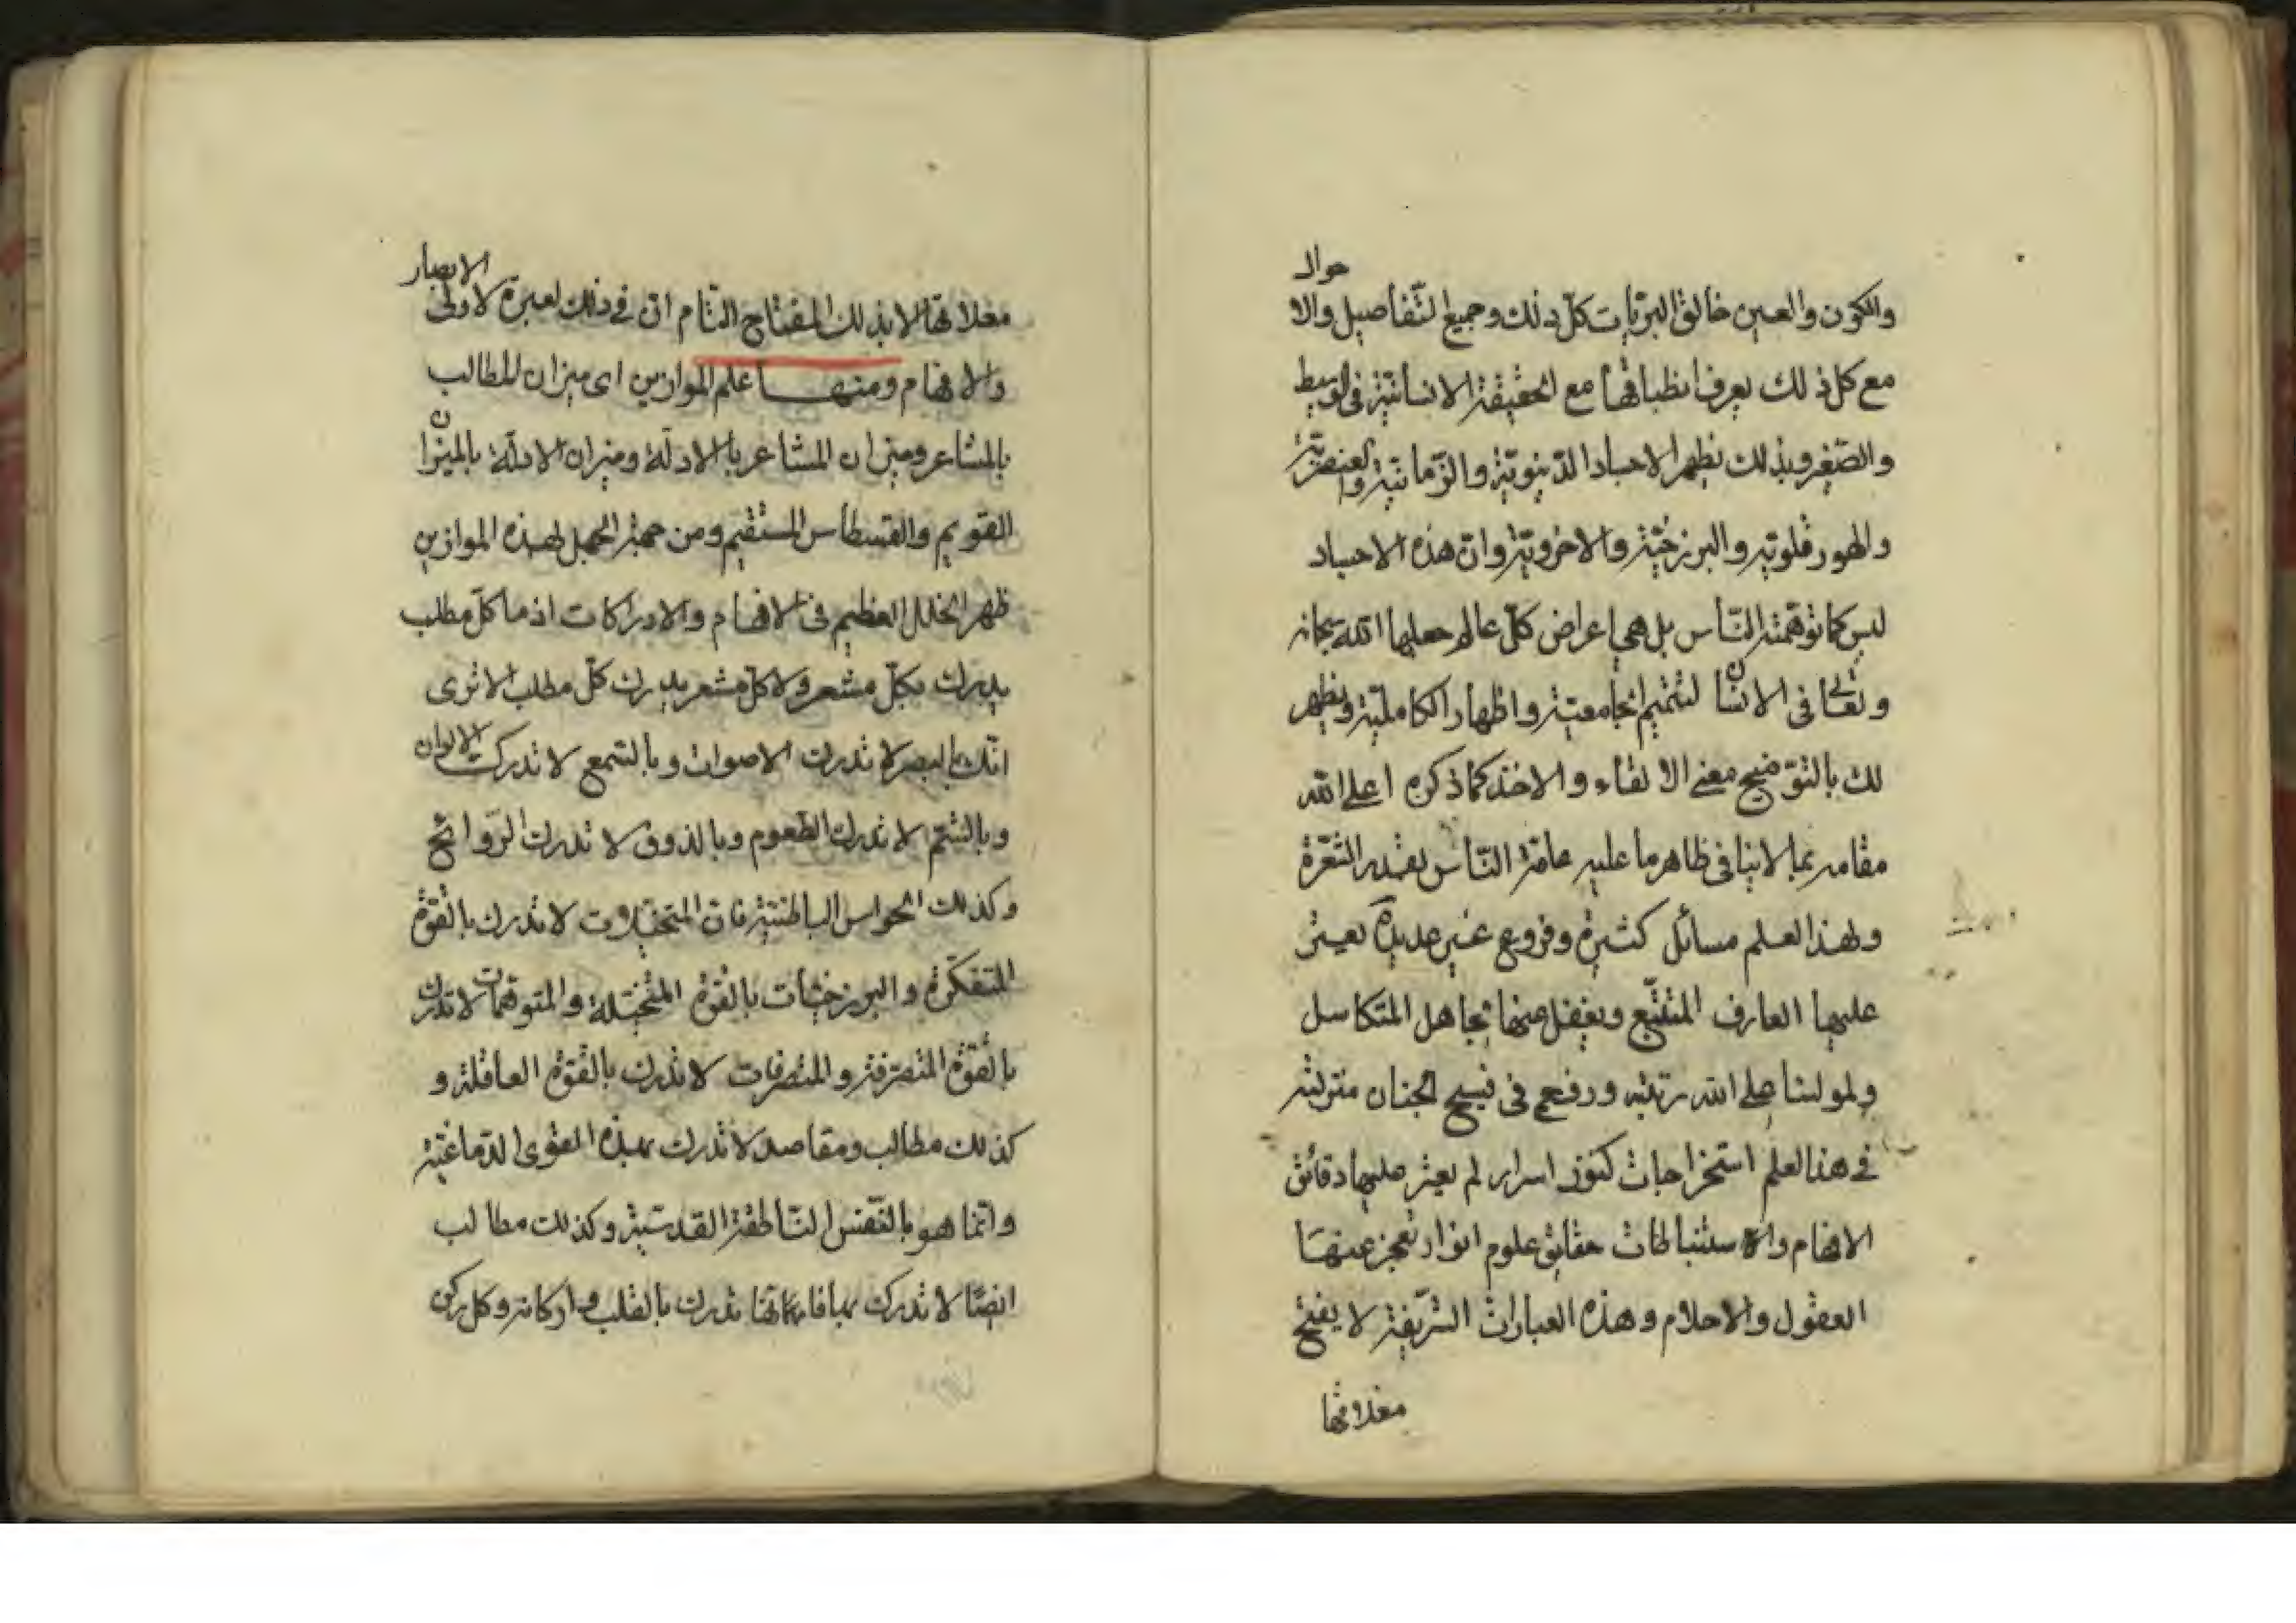 والكون والعين خالق البريات كل ذلك وجميع التفاصيل والاحوال
مع كل ذلك يعرف انطباقها مع الحقيقة الانسانية فى الوسيط
والصغير وبذلك يظهر الاجساد الدنيوية والزمانية والعنصرية
والهورقلوتيه والبرزخية والاخروية وان هذه الاجساد
ليس كما توهمته الناس بل هي اعراض كل عالم جعلها الله سبحانه
وتعالى فى الانسان لتتميم الجامعية واظهار الكاملية ويظهر
لك بالتوضيح معنى الالقاء والاخذ كما ذكره اعلى الله
مقامه بما لاينافى ظاهر ما عليه عامة الناس
ولهذا العلم مسائل كثيرة وفروع غير عديدة يعثر
عليها العارف المتتبع ويغفل عنها تجاهل المتكاسل
ولمولينا اعلى الله رتبته ورفع فى فسيح الجنان منزلته
في هذا العلم استخراجات كنوز اسرار لم يعثر عليها دقائق
الافهام والاستنباطات حقايق علوم انوار تعجز عنها
العقول والاحلام وهذه العبارات الشريفة لا يفتح
مغلاقها
مغلاقها الا بذلك المفتاح التام ان في ذلك لعبرة لاولى الابصار
والافهام ومنها علم الموازين اى ميزان المطالب
بالمشاعر وميزان المشاعر بالادلة وميزان الادلة بالميزان
القويم والقسطاس المستقيم ومن جهة الجهل لهذه الموازين
ظهر الخلل العظيم فى الافهام والادراكات اذ ما كل مطلب
يدرك بكل مشعر ولا كل مشعر يدرك كل مطلب الا ترى
انك بالبصر لا تدرك الاصوات وبالسمع لا تدرك الالوان
وبالشم لا تدرك الطعوم وبالذوق لا تدرك الروائح
وكذلك الحواس الباطنية فان المتخيلات لا تدرك بالقوة
المتفكرة والبرزخيات بالقوة المتخيلة والمتوهمات لا تدرك
بالقوة المتصرفة والمتصرفات لا تدرك بالقوة العاقلة و
كذلك مطالب ومقاصد لا تدرك بهذه القوى الدماغية
وانما هو بالنفس الناطقة القدسية وكذلك مطالب
ايضا لا تدرك بها فانها تدرك بالقلب واركانه وكل ركن